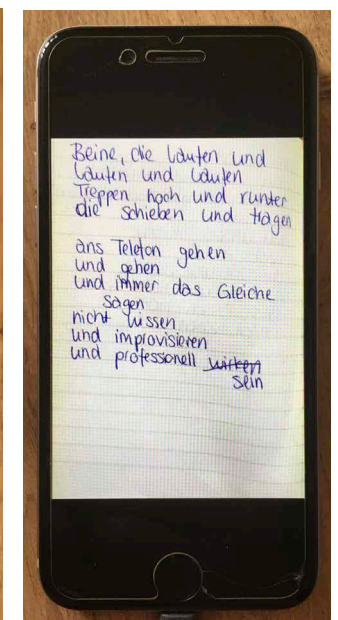 Beine, die laufen und
laufen und laufen
Treppen hoch und runter
die schieben und tragen
ans Telefon gehen
und gehen
und immer das Gleiche
sagen
nicht wissen
und improvisieren
und professionell wirken
sein